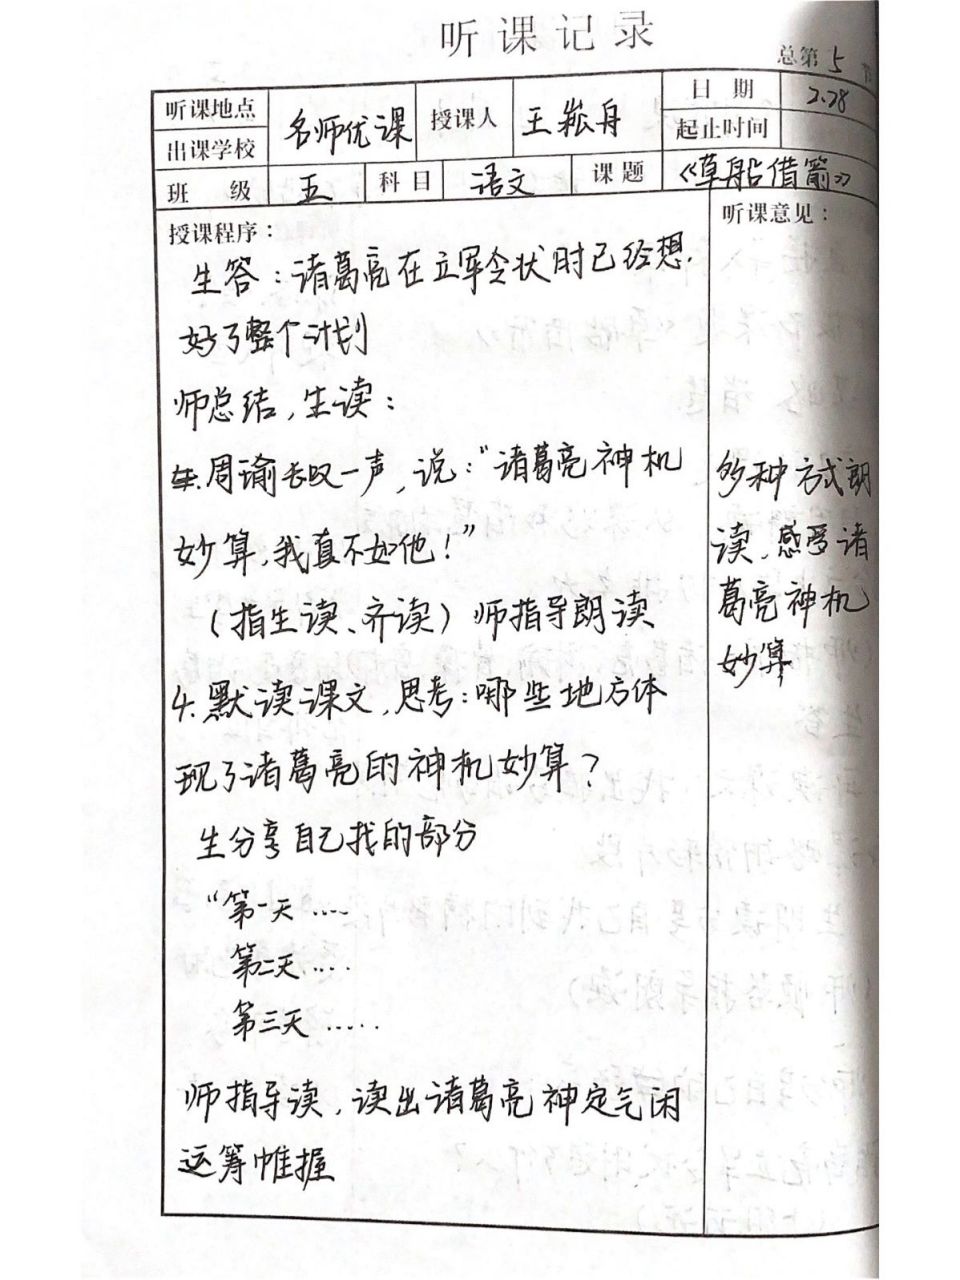 听课记录
总第5
听课地点
出课学校
名师优课
授课人
王崧舟
日 期
2.28
起止时间
班 级
五
科目
语文
课题
《草船借箭》
授课程序：
听课意见：
生答：诸葛亮在立军令状时已经想
好了整个计划
师总结，生读：
周瑜长叹一声，说：“诸葛亮神机
妙算，我真不如他！”
（指生读、齐读）师指导朗读
4.默读课文，思考：哪些地方体
现了诸葛亮的神机妙算？
生分享自己找的部分
“第一天……
第二天……
第三天……
师指导读，读出诸葛亮神定气闲
运筹帷握
多种方式朗
读，感受诸
葛亮神机
妙算